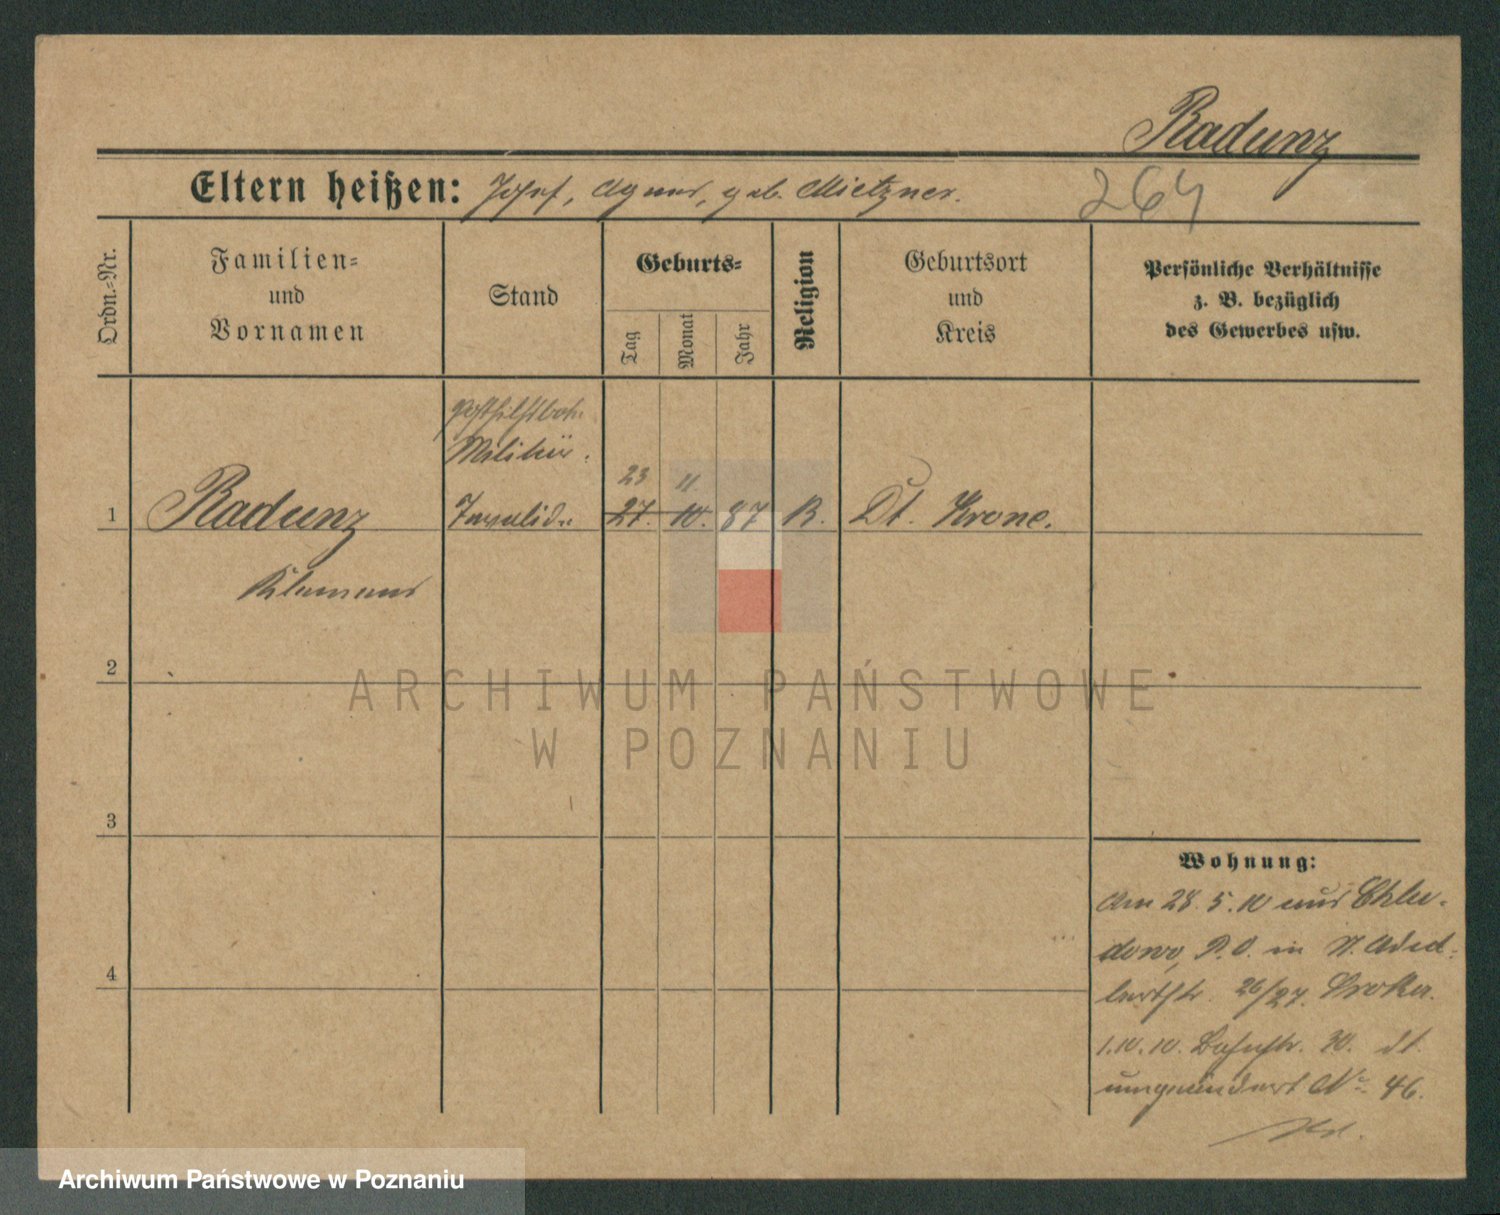 Radunz
Eltern heißen: Josef, Agnes, geb. Mietzner.
264
Ordn.-Nr.
Familien-
und
Vornamen
Stand
Geburts-
Tag
Monat
Jahr
Religion
Geburtsort
und
Kreis
Persönliche Verhältnisse
z. B. bezüglich
des Gewerbes usw.
Militär.
23 11.
1 Radunz Invalide 27. 10. 87 K. Dt. Krone.
Klemens
2
3
4
Wohnung:
Am 28.5.10 aus Chlu-
dowo, P.O. in
26/27.
1.10.10. Bahnstr. 30.
umgeändert No. 46.
ARCHIWUM PAŃSTWOWE
W POZNANIU
Archiwum Państwowe w Poznaniu